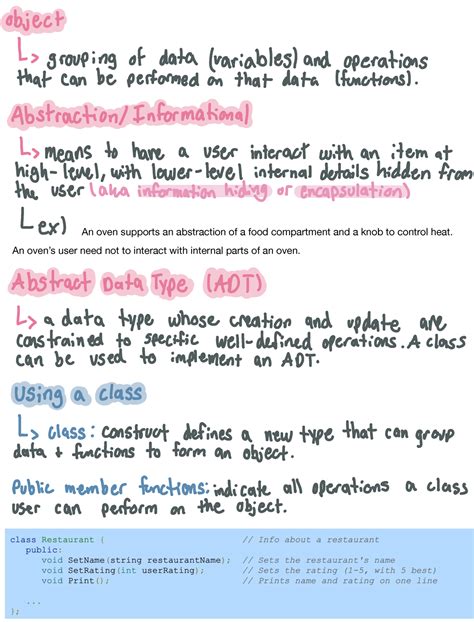 object
↳ grouping of data (variables) and operations
that can be performed on that data (functions).
Abstraction/Informational
↳ means to have a user interact with an item at
high-level, with lower-level internal details hidden from
the user (aka information hiding or encapsulation)
↳ ex) An oven supports an abstraction of a food compartment and a knob to control heat.
An oven's user need not to interact with internal parts of an oven.
Abstract Data Type (ADT)
↳ a data type whose creation and update are
constrained to specific well-defined operations. A class
can be used to implement an ADT.
Using a class
↳ class: construct defines a new type that can group
data + functions to form an object.
Public member functions: indicate all operations a class
user can perform on the object.
class Restaurant { // Info about a restaurant
public:
void SetName(string restaurantName); // Sets the restaurant's name
void SetRating(int userRating); // Sets the rating (1-5, with 5 best)
void Print(); // Prints name and rating on one line
...
};